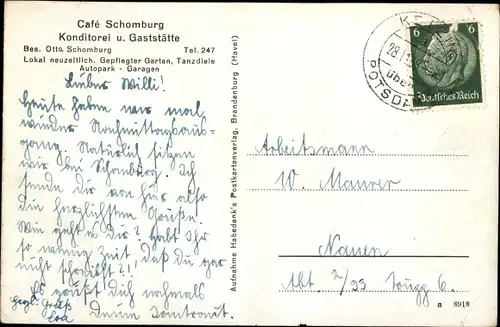 Café Schomburg
Konditorei u. Gaststätte
Bes. Otto Schomburg Tel. 247
Lokal neuzeitlich. Gepflegter Garten, Tanzdiele
Autopark - Garagen
Lieber Willi!
Heute haben wir mal
wieder Nachmittagsaus-
gang. Natürlich sitzen
wir bei Schomburg. Ich
sende dir von hier also
die herzlichsten Grüße.
Wie geht es Dir? Habt Ihr
so wenig Zeit, daß du gar
nicht schreibst?!
Es grüßt dich nochmals
Deine
Aufnahme Habedank's Postkartenverlag, Brandenburg (Havel)
28.
über
POTSDAM
6 6
Deutsches Reich
Arbeitsmann
W. Maurer
Nauen
Abt. 7/93 6.
a 8918